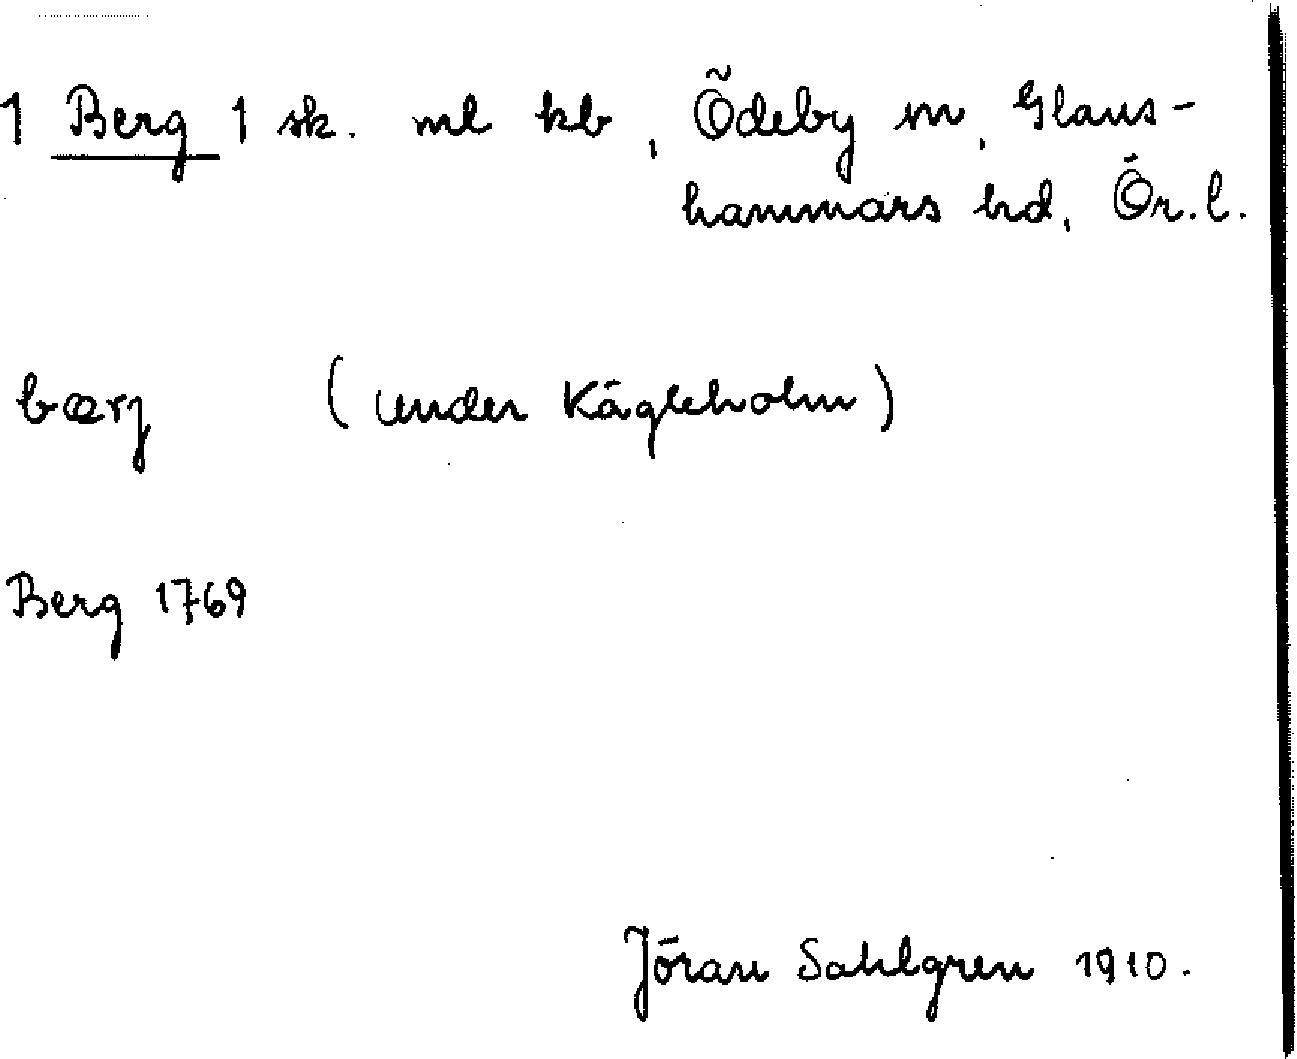 1 Berg 1 sk. ml kb, Ödeby sn, Glans-
hammars hd, Ör.l.
bærj (under Kägleholm)
Berg 1769
Jöran Sahlgren 1910.